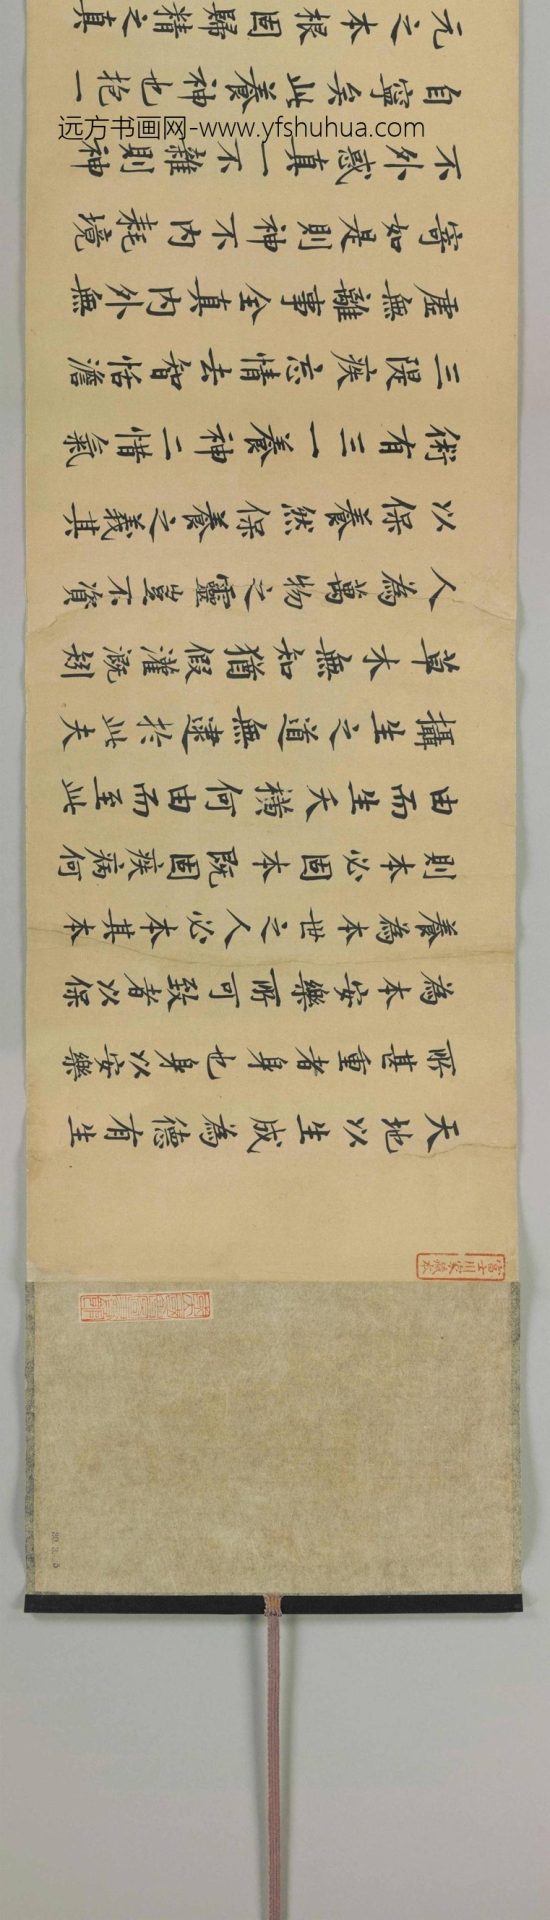 远方书画网-www.yfshuhua.com
富士川家藏本
天地以生成為德有生
所甚重者身也身以安樂
為本安樂所可致者以保
養為本世之人必本其本
則本必固本既固疾病何
由而生夭橫何由而至此
攝生之道無逮於此夫
草木無知猶假灌溉矧
人為萬物之靈豈不資
以保養然保養之義其
術有三一養神二惜氣
三隄疾忘情去智恬澹
虛無離事全真內外無
寄如是則神不內耗境
不外惑真一不雜則神
自寧矣此養神也抱一
元之本根固歸精之真